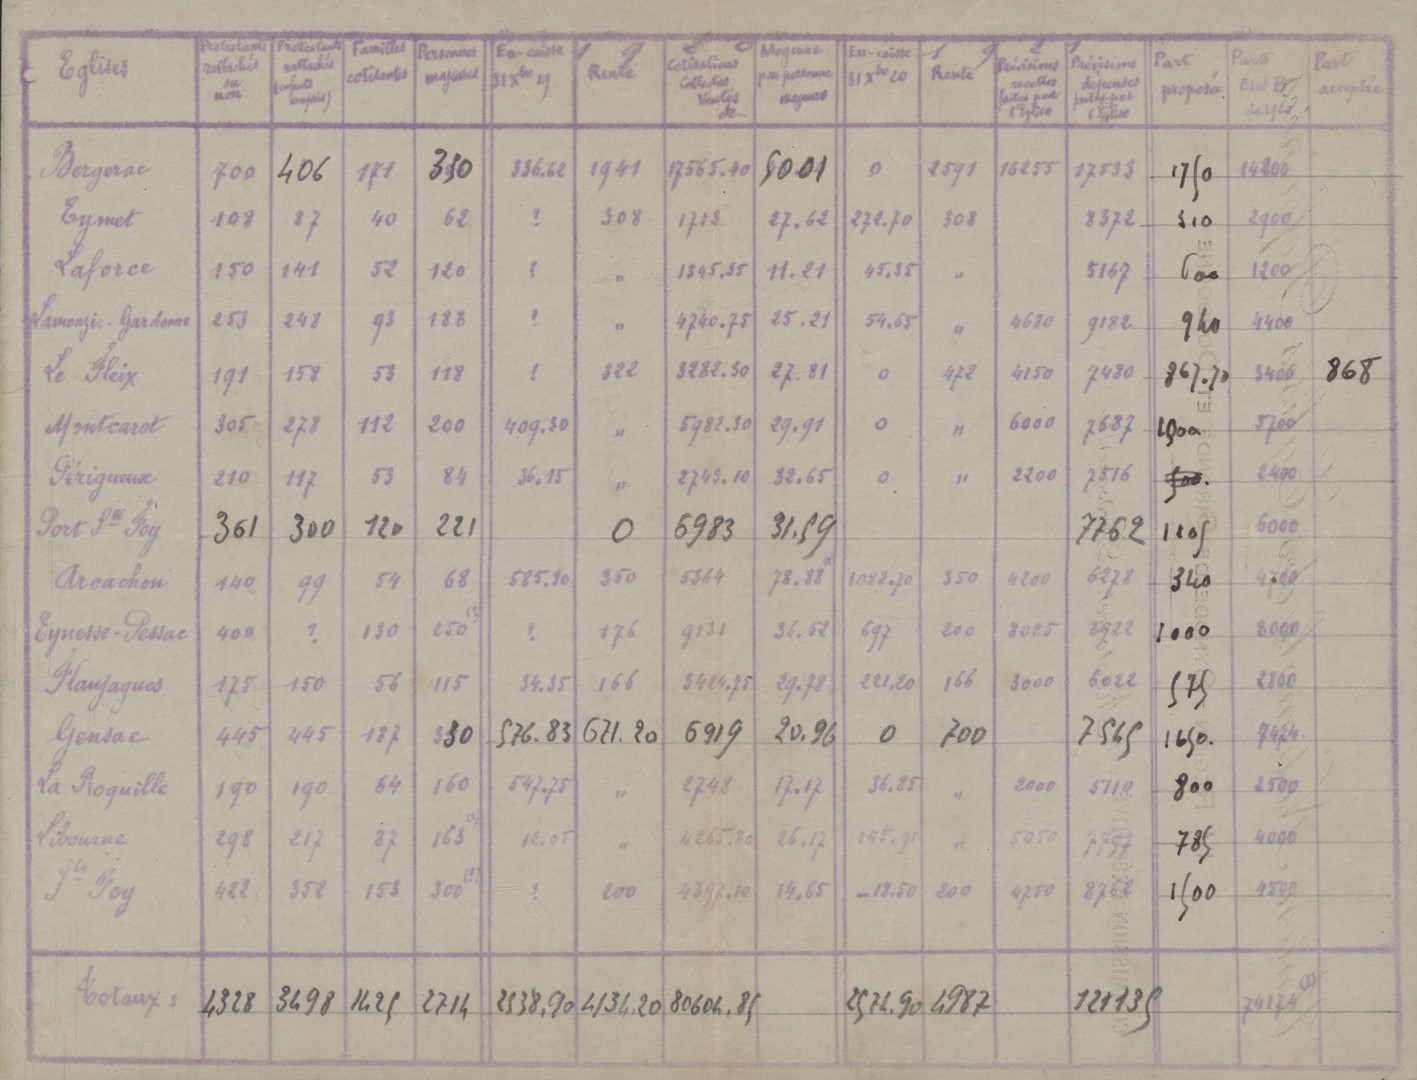 Eglises | Protestants rattachés ou non | Protestants rattachés (enfants compris) | Familles cotisantes | Personnes majeures | En-caisse 31 Xbre 19 | Rente | Cotisations Collectes Ventes de | Moyenne par personne majeure | En-caisse 31 Xbre 20 | Rente | Prévisions recettes faites par l'Eglise | Prévisions dépenses faites par l'Eglise | Part proposé | Part | Part acceptée
1 9 2 0 | 1 9 2 1
Bergerac 700 406 171 350 336.62 1941 17565.40 50 01 0 2591 16255 17533 1750 14200
Eymet 108 87 40 62 ? 308 1713 27.62 272.70 308 8372 310 2900
Laforce 150 141 52 120 ? " 1345.35 11.21 45.35 " 5167 600 1200
Lamonzie-Gardonne 253 248 93 188 ? " 4740.75 25.21 54.65 " 4680 9182 940 4400
Le Fleix 191 158 53 118 ? 322 3282.30 27.81 0 472 4150 7480 867.70 3400 868
Montcaret 305 278 112 200 409.30 " 5982.30 29.91 0 " 6000 7687 1500 5700
Périgueux 210 117 53 84 36.15 " 2743.10 32.65 0 " 2200 7516 500. 2400
Port Ste Foy 361 300 120 221 0 6983 31.59 7762 1205 6000
Arcachon 140 99 54 68 585.30 350 5364 78.88 1082.70 350 4200 6278 340 4700
Eynesse-Pessac 400 ? 130 250 ? 176 9131 36.52 697 200 8025 8922 1000 8000
Flaujagues 175 150 56 115 34.35 166 3424.75 29.78 221.20 166 3000 6022 575 2800
Gensac 445 445 187 330 576.83 671.20 6919 20.96 0 700 7565 1650. 7424
La Roquille 190 190 64 160 547.75 " 2748 17.17 36.85 " 2000 5110 800 2500
Libourne 298 217 87 163 12.05 " 4265.80 26.17 145.95 " 5050 785 4000
Ste Foy 422 352 153 300 ? 200 4397.10 14.65 -18.50 200 4750 8762 1500 4500
Totaux : 4328 3498 1425 2714 2538.90 4134.20 80604.85 2574.90 4987 121135 74174